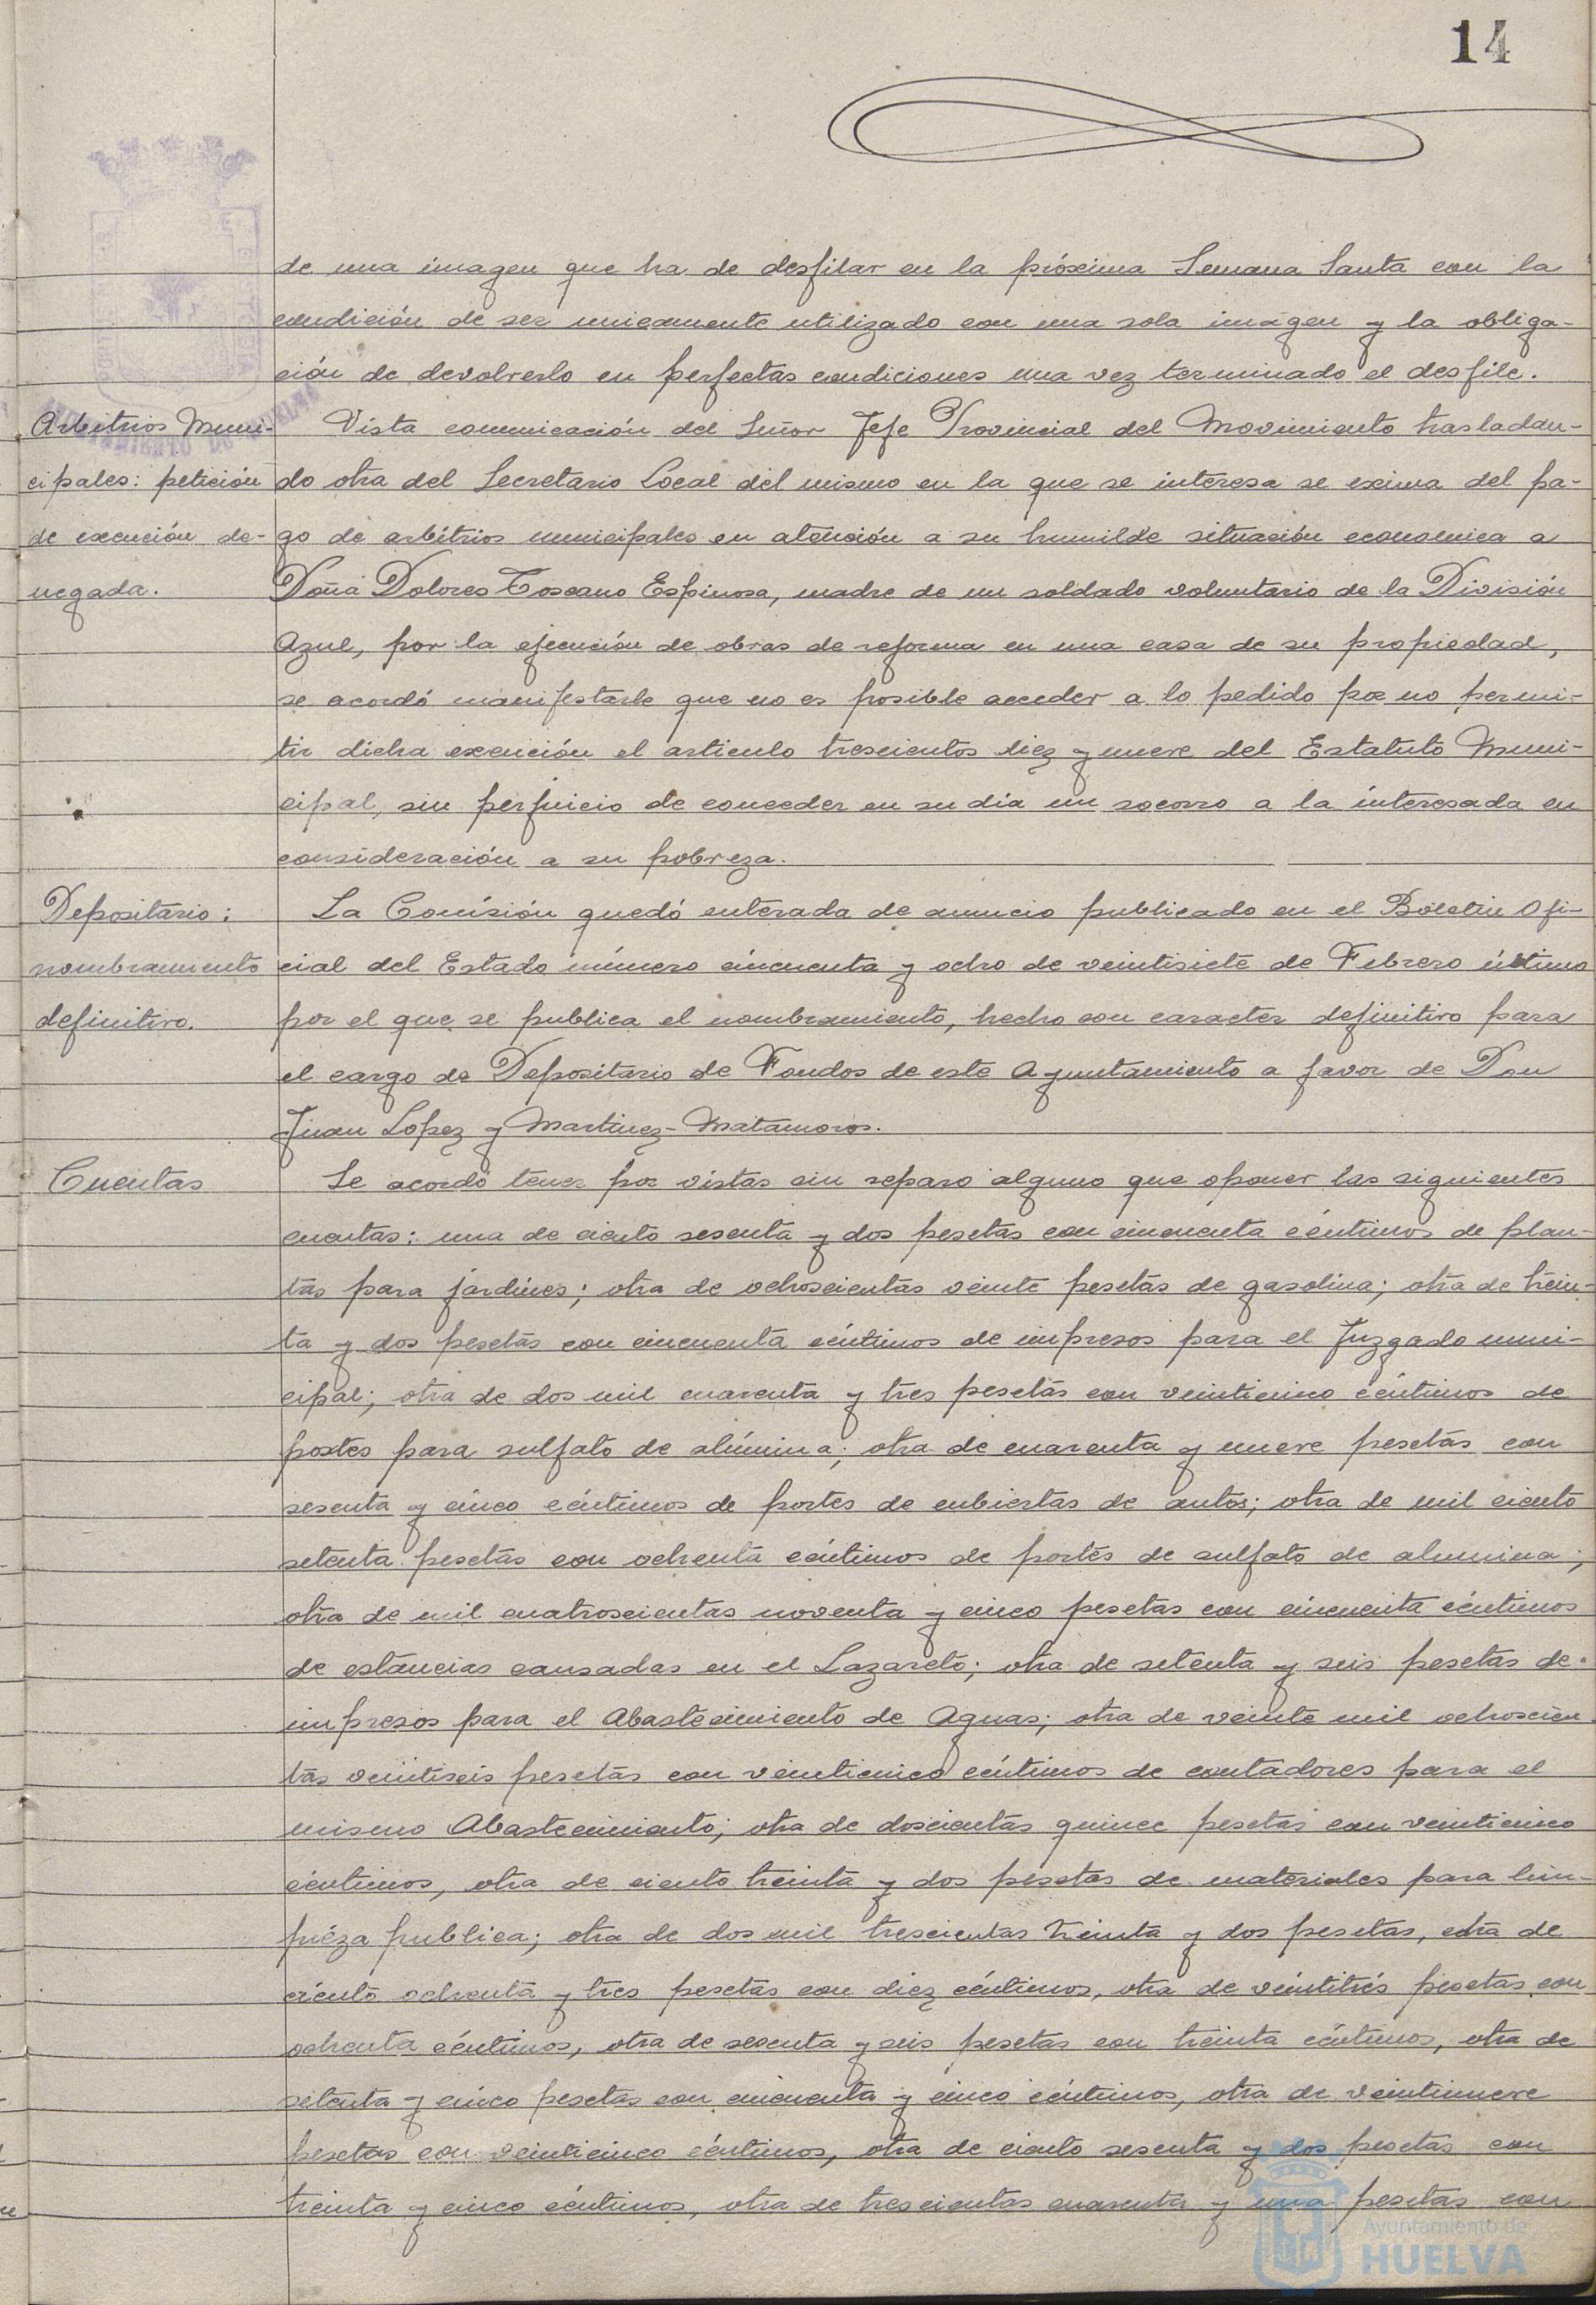 14
de una imagen que ha de desfilar en la próxima Semana Santa con la
condición de ser unicamente utilizado con una sola imágen y la obliga-
ción de devolverlo en perfectas condiciones una vez terminado el desfile.
Arbitrios Muni-
cipales: petición
de exención de-
negada.
Vista comunicación del Señor Jefe Provincial del Movimiento trasladan-
do otra del Secretario Local del mismo en la que se interesa se exima del pa-
go de arbitrios municipales en atención a su humilde situación economica a
Doña Dolores Toscano Espinosa, madre de un soldado voluntario de la División
Azul, por la ejecución de obras de reforma en una casa de su propiedad,
se acordó manifestarle que no es posible acceder a lo pedido por no permi-
tir dicha exención el articulo trescientos diez y nueve del Estatuto Muni-
cipal, sin perjuicio de conceder en su día un socorro a la interesada en
consideración a su pobreza.
Depositario:
nombramiento
definitivo.
La Comisión quedó enterada de anuncio publicado en el Boletin Ofi-
cial del Estado número cincuenta y ocho de veintisiete de Febrero último
por el que se publica el nombramiento, hecho con caracter definitivo para
el cargo de Depositario de Fondos de este Ayuntamiento a favor de Don
Juan Lopez y Martinez-Matamoros.
Cuentas
Se acordó tener por vistas sin reparo alguno que oponer las siguientes
cuentas: una de ciento sesenta y dos pesetas con cincuenta céntimos de plan-
tas para jardines; otra de ochoscientas veinte pesetas de gasolina; otra de trein-
ta y dos pesetas con cincuenta céntimos de impresos para el Juzgado muni-
cipal; otra de dos mil cuarenta y tres pesetas con veinticinco céntimos de
portes para sulfato de alúmina; otra de cuarenta y nueve pesetas con
sesenta y cinco céntimos de portes de cubiertas de autos; otra de mil ciento
setenta pesetas con ochenta céntimos de portes de sulfato de alumina;
otra de mil cuatroscientas noventa y cinco pesetas con cincuenta céntimos
de estancias causadas en el Lazareto; otra de setenta y seis pesetas de
impresos para el Abastecimiento de Aguas; otra de veinte mil ochoscien
tas veintiseis pesetas con veinticinco céntimos de contadores para el
mismo Abastecimiento; otra de doscientas quince pesetas con veinticinco
céntimos, otra de ciento treinta y dos pesetas de materiales para lim-
pieza publica; otra de dos mil trescientas treinta y dos pesetas, otra de
ciento ochenta y tres pesetas con diez céntimos, otra de veintitrés pesetas con
ochenta céntimos, otra de sesenta y seis pesetas con treinta céntimos, otra de
setenta y cinco pesetas con cincuenta y cinco céntimos, otra de veintinueve
pesetas con veinticinco céntimos, otra de ciento sesenta y dos pesetas con
treinta y cinco céntimos, otra de trescientas cuarenta y una pesetas con
Ayuntamiento de
HUELVA